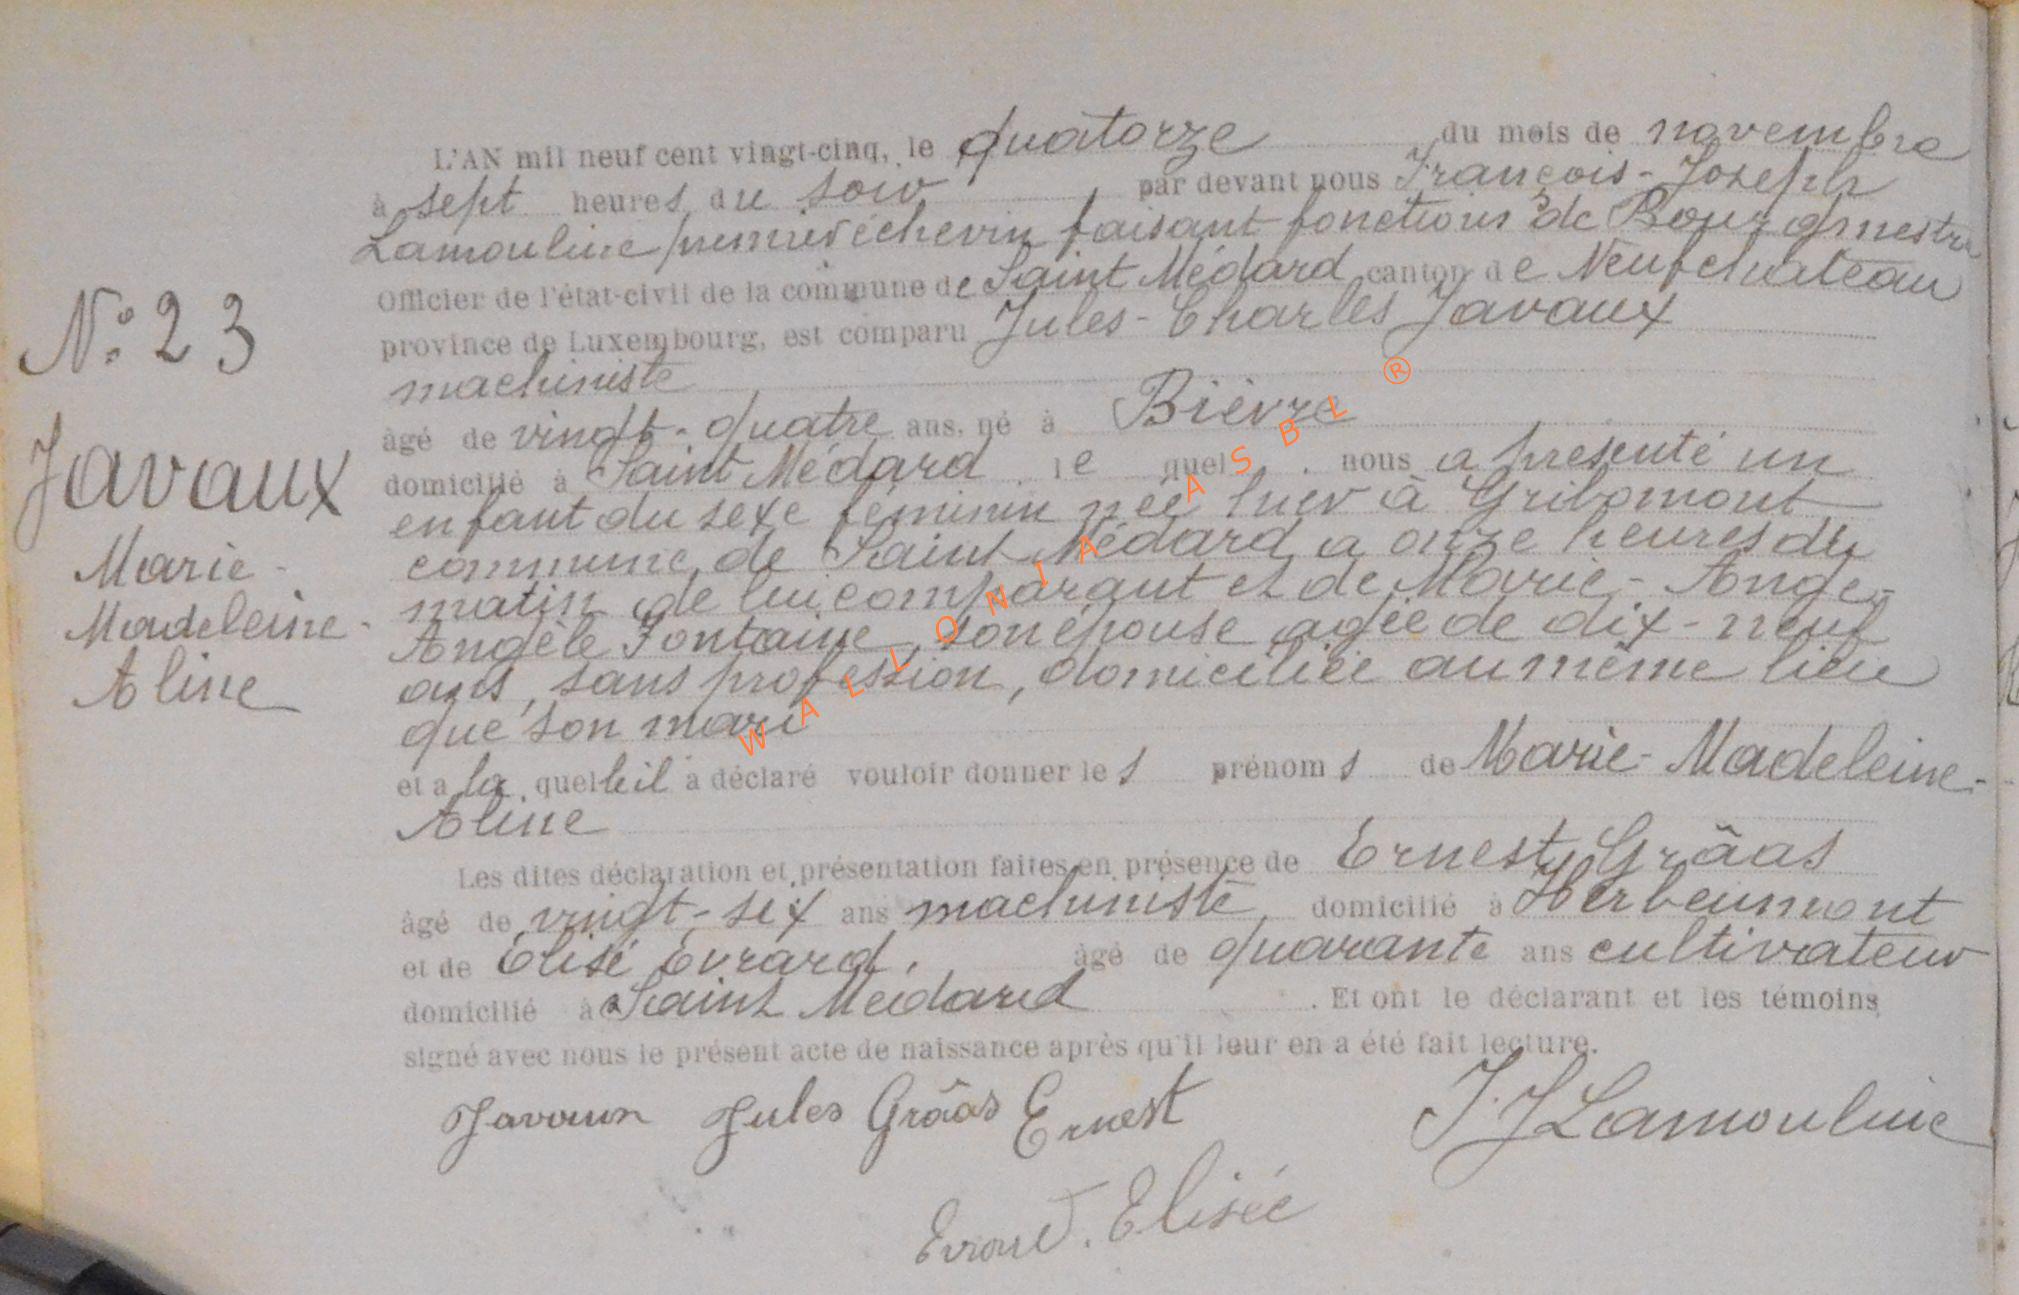 L'AN mil neuf cent vingt-cinq, le quatorze du mois de novembre
à sept heures du soir par devant nous François-Joseph
Lamouline premier échevin faisant fonctions de Bourgmestre
Officier de l'état-civil de la commune de Saint Médard canton de Neufchateau
province de Luxembourg, est comparu Jules-Charles Javaux
machiniste
âgé de vingt-quatre ans, né à Bièvre
domicilié à Saint Médard lequel nous a présenté un
enfant du sexe féminin née hier à Gribomont
commune de Saint Médard a onze heures du
matin de lui comparant et de Marie-Ange-
Angèle Fontaine, son épouse agée de dix-neuf
ans, sans profession, domiciliée au même lieu
que son mari
et a laquelle il a déclaré vouloir donner les prénoms de Marie-Madeleine-
Aline
Les dites déclaration et présentation faites en présence de Ernest Grâas
âgé de vingt-six ans machiniste domicilié à Herbeumont
et de Elisé Evrard, âgé de quarante ans cultivateur
domicilié à Saint Médard. Et ont le déclarant et les témoins
signé avec nous le présent acte de naissance après qu'il leur en a été fait lecture.
Javaux Jules Grâas Ernest J. J Lamouline
Evrard. Elisée
N° 23
Javaux
Marie-
Madeleine-
Aline
WALLONIA ASBL ®